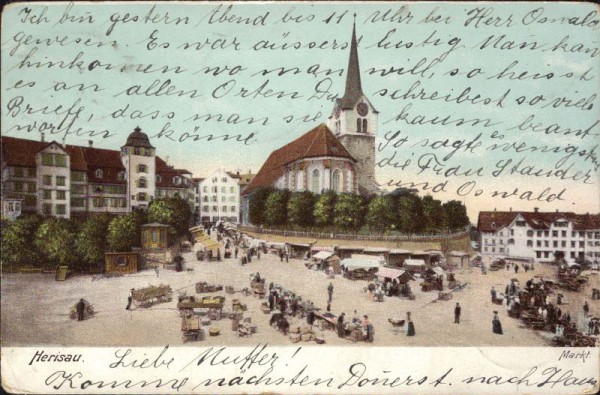 Ich bin gestern Abend bis 11 Uhr bei Herr Oswald
gewesen. Es war äussers lustig Man kan
hinkommen wo man will, so heisst
es an allen Orten Du schreibest so viele
Briefe, dass man sie kaum beant
worten könne So sagte es wenigst
die Frau Stauder
und Oswald
Herisau.
Markt.
Liebe Mutter!
Komme nächsten Donerst. nach Haus